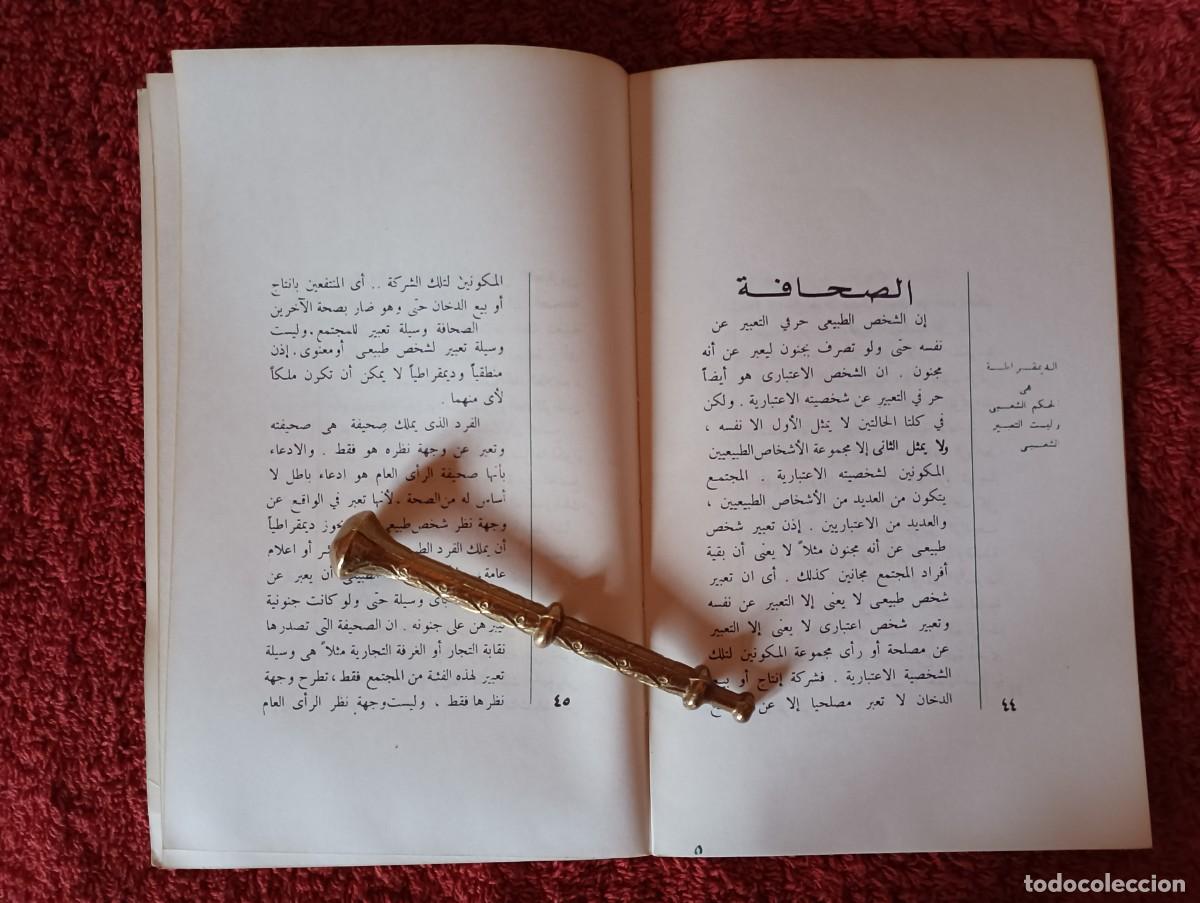 الصحافة
إن الشخص الطبيعى حر في التعبير عن
نفسه حتى ولو تصرف بجنون ليعبر عن أنه
مجنون . ان الشخص الاعتبارى هو أيضاً
حر في التعبير عن شخصيته الاعتبارية . ولكن
في كلتا الحالتين لا يمثل الأول الا نفسه ،
ولا يمثل الثانى إلا مجموعة الأشخاص الطبيعيين
المكونين لشخصيته الاعتبارية . المجتمع
يتكون من العديد من الأشخاص الطبيعيين ،
والعديد من الاعتباريين . إذن تعبير شخص
طبيعى عن أنه مجنون مثلاً لا يعنى أن بقية
أفراد المجتمع مجانين كذلك . أى ان تعبير
شخص طبيعى لا يعنى إلا التعبير عن نفسه
وتعبير شخص اعتبارى لا يعنى إلا التعبير
عن مصلحة أو رأى مجموعة المكونين لتلك
الشخصية الاعتبارية . فشركة إنتاج أو بيع
الدخان لا تعبر مصلحيا إلا عن
الديمقراطية
هى
الحكم الشعبى
وليست التعبير
الشعبى
٤٤
المكونين لتلك الشركة .. أى المنتفعين بانتاج
أو بيع الدخان حتى وهو ضار بصحة الآخرين
الصحافة وسيلة تعبير للمجتمع، وليست
وسيلة تعبير لشخص طبيعى أو معنوى . إذن
منطقياً وديمقراطياً لا يمكن أن تكون ملكاً
لأى منهما .
الفرد الذى يملك صحيفة هى صحيفته
وتعبر عن وجهة نظره هو فقط . والادعاء
بأنها صحيفة الرأى العام هو ادعاء باطل لا
أساس له من الصحة . لأنها تعبر في الواقع عن
وجهة نظر شخص طبيعى ديمقراطياً
أن يملك الفرد أو اعلام
عامة، أن يعبر عن
بأى وسيلة حتى ولو كانت جنونية
ليبرهن على جنونه . ان الصحيفة التى تصدرها
نقابة التجار أو الغرفة التجارية مثلاً هى وسيلة
تعبير لهذه الفئة من المجتمع فقط، تطرح وجهة
نظرها فقط ، وليست وجهة نظر الرأى العام
٤٥
todocoleccion